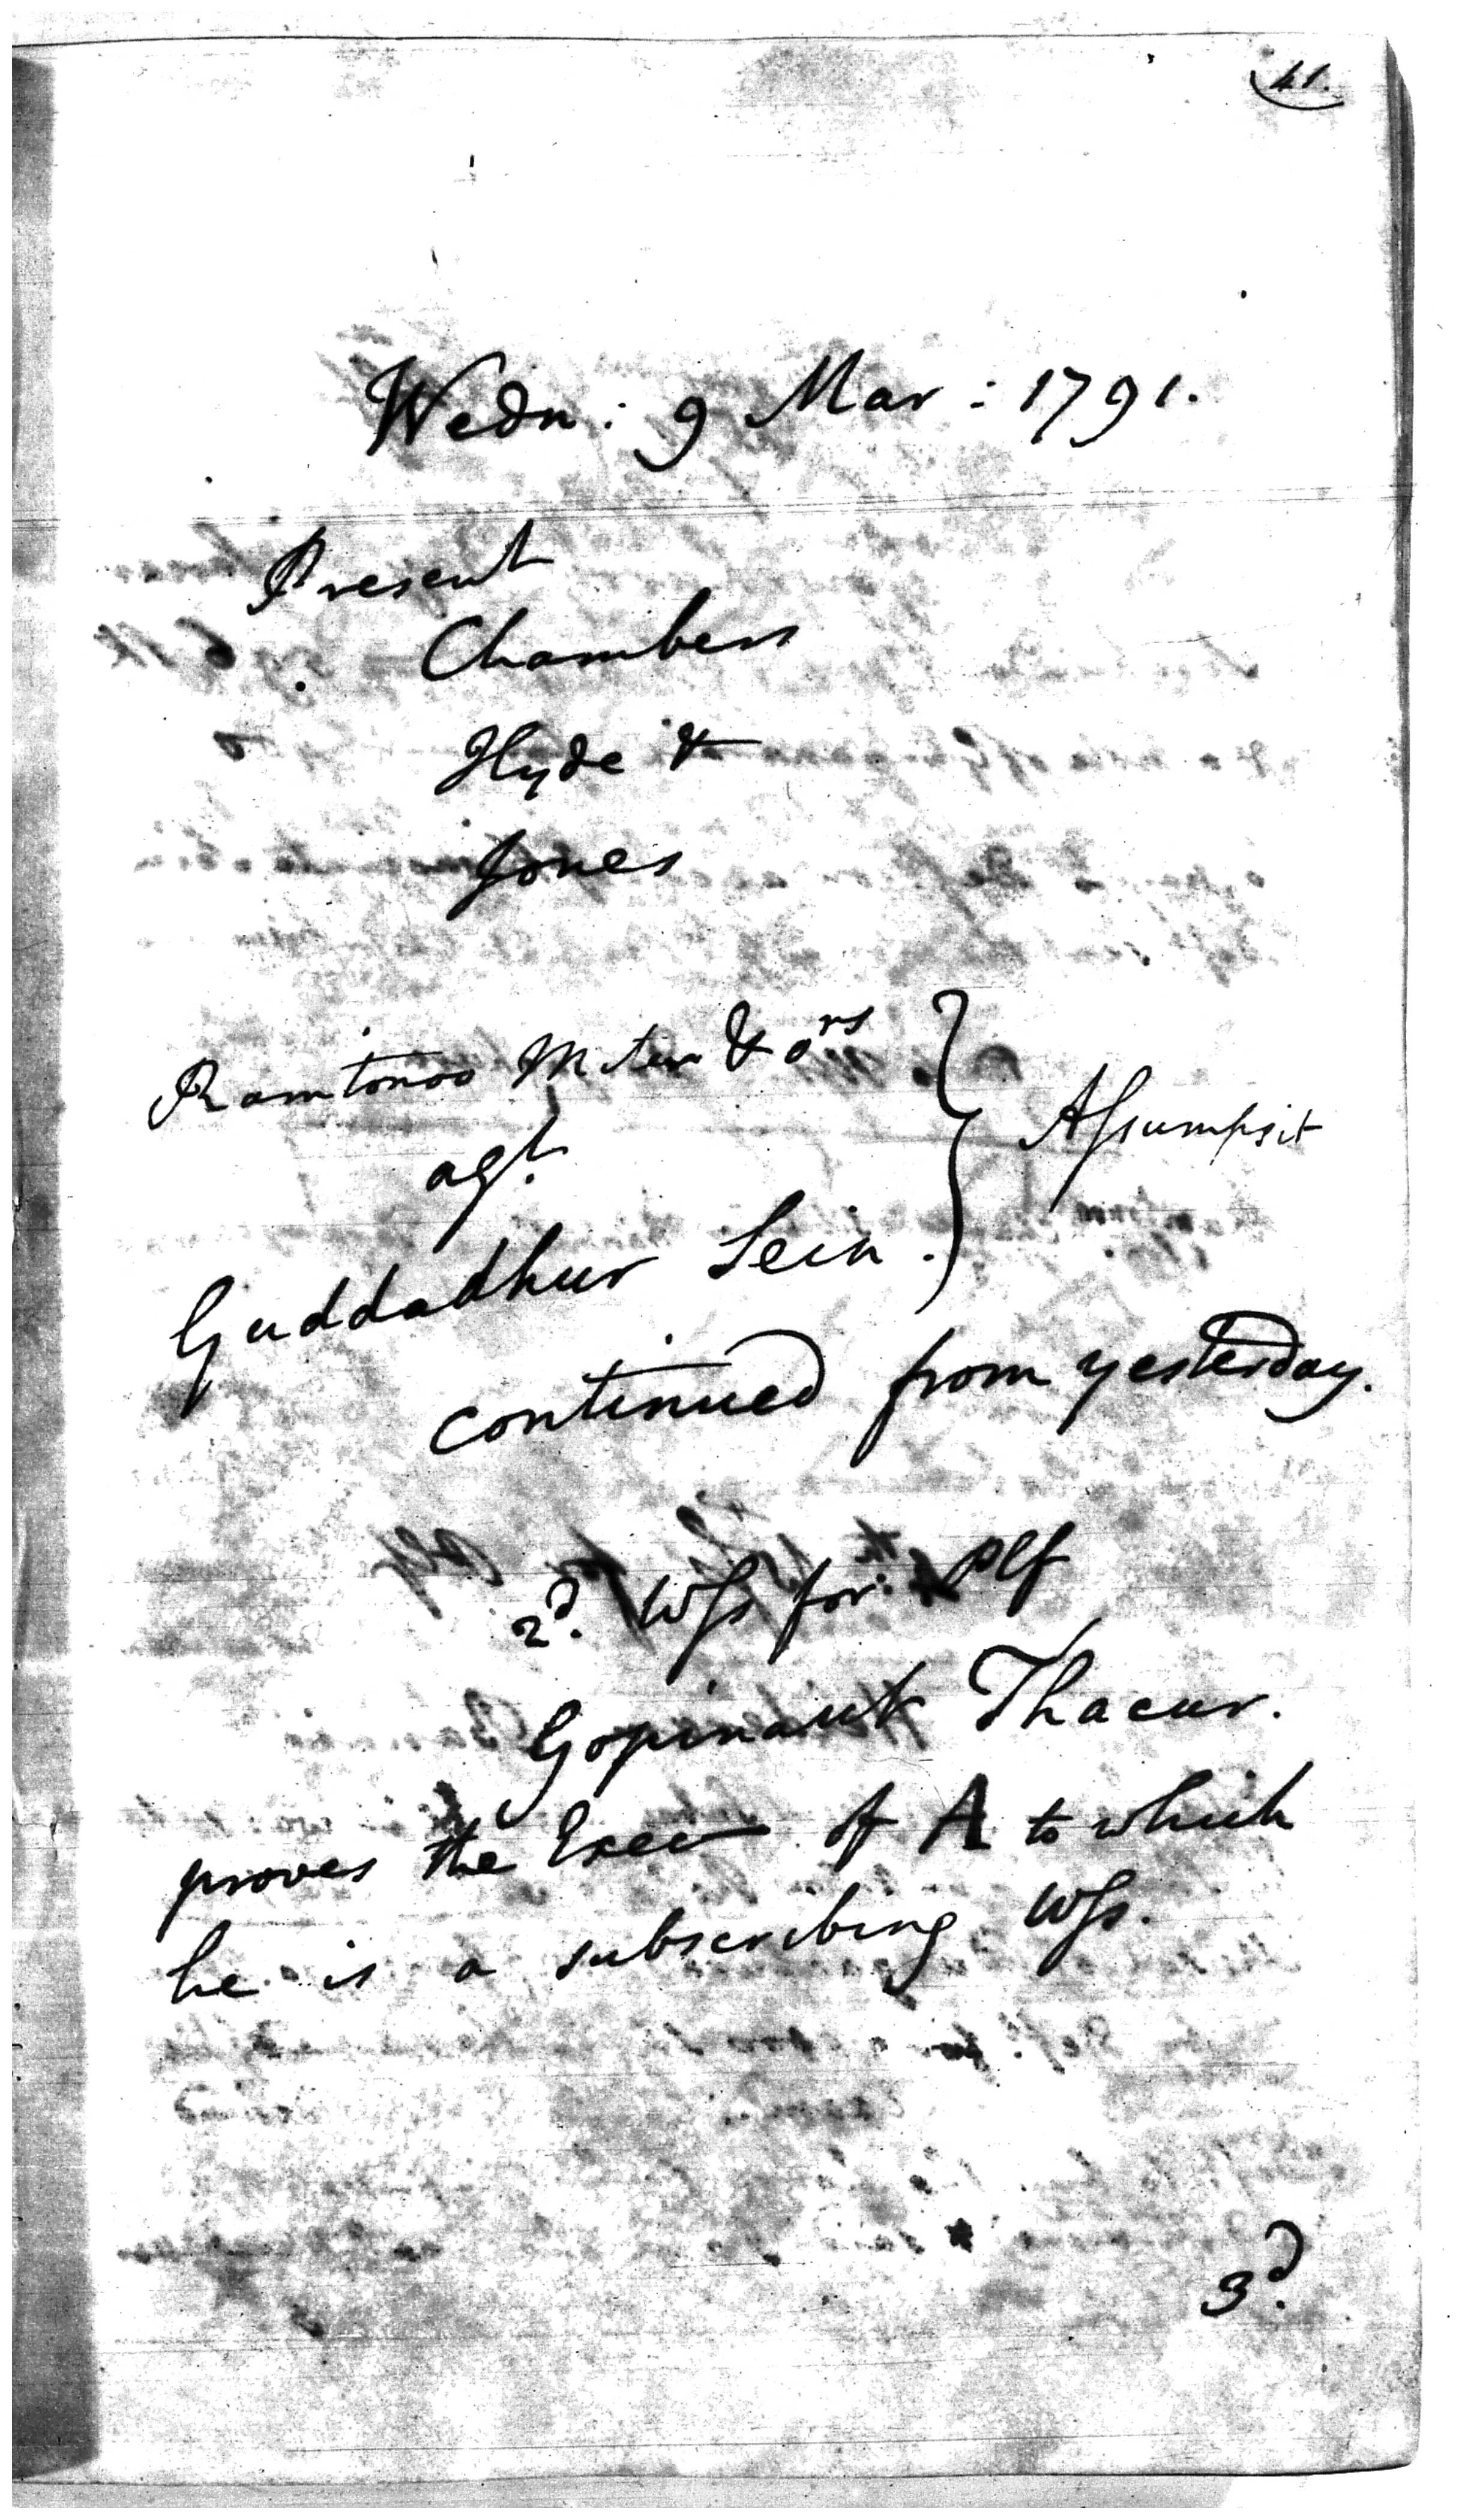 41.
Wedn: 9 Mar: 1791.
Present
Chambers
Hyde &
Jones
Ramtonoo Miter & ors
agt.
Guddadhur Sein.
Assumpsit
continued from yesterday.
2d. Wss for Plf
Gopinaut Thacur.
proves the Execn of A to which
he is a subscribing Wss.
3d.